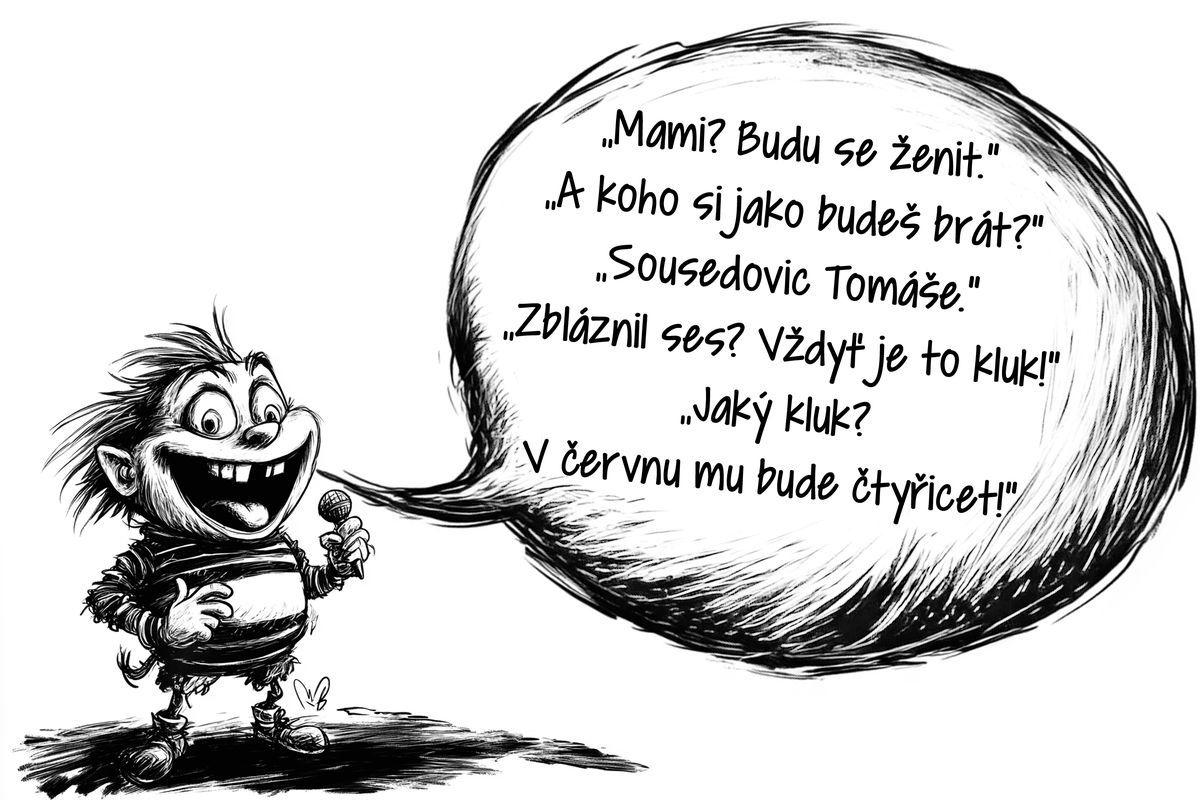 „Mami? Budu se ženit."
„A koho si jako budeš brát?"
„Sousedovic Tomáše."
„Zbláznil ses? Vždyť je to kluk!"
„Jaký kluk?
V červnu mu bude čtyřicet!"